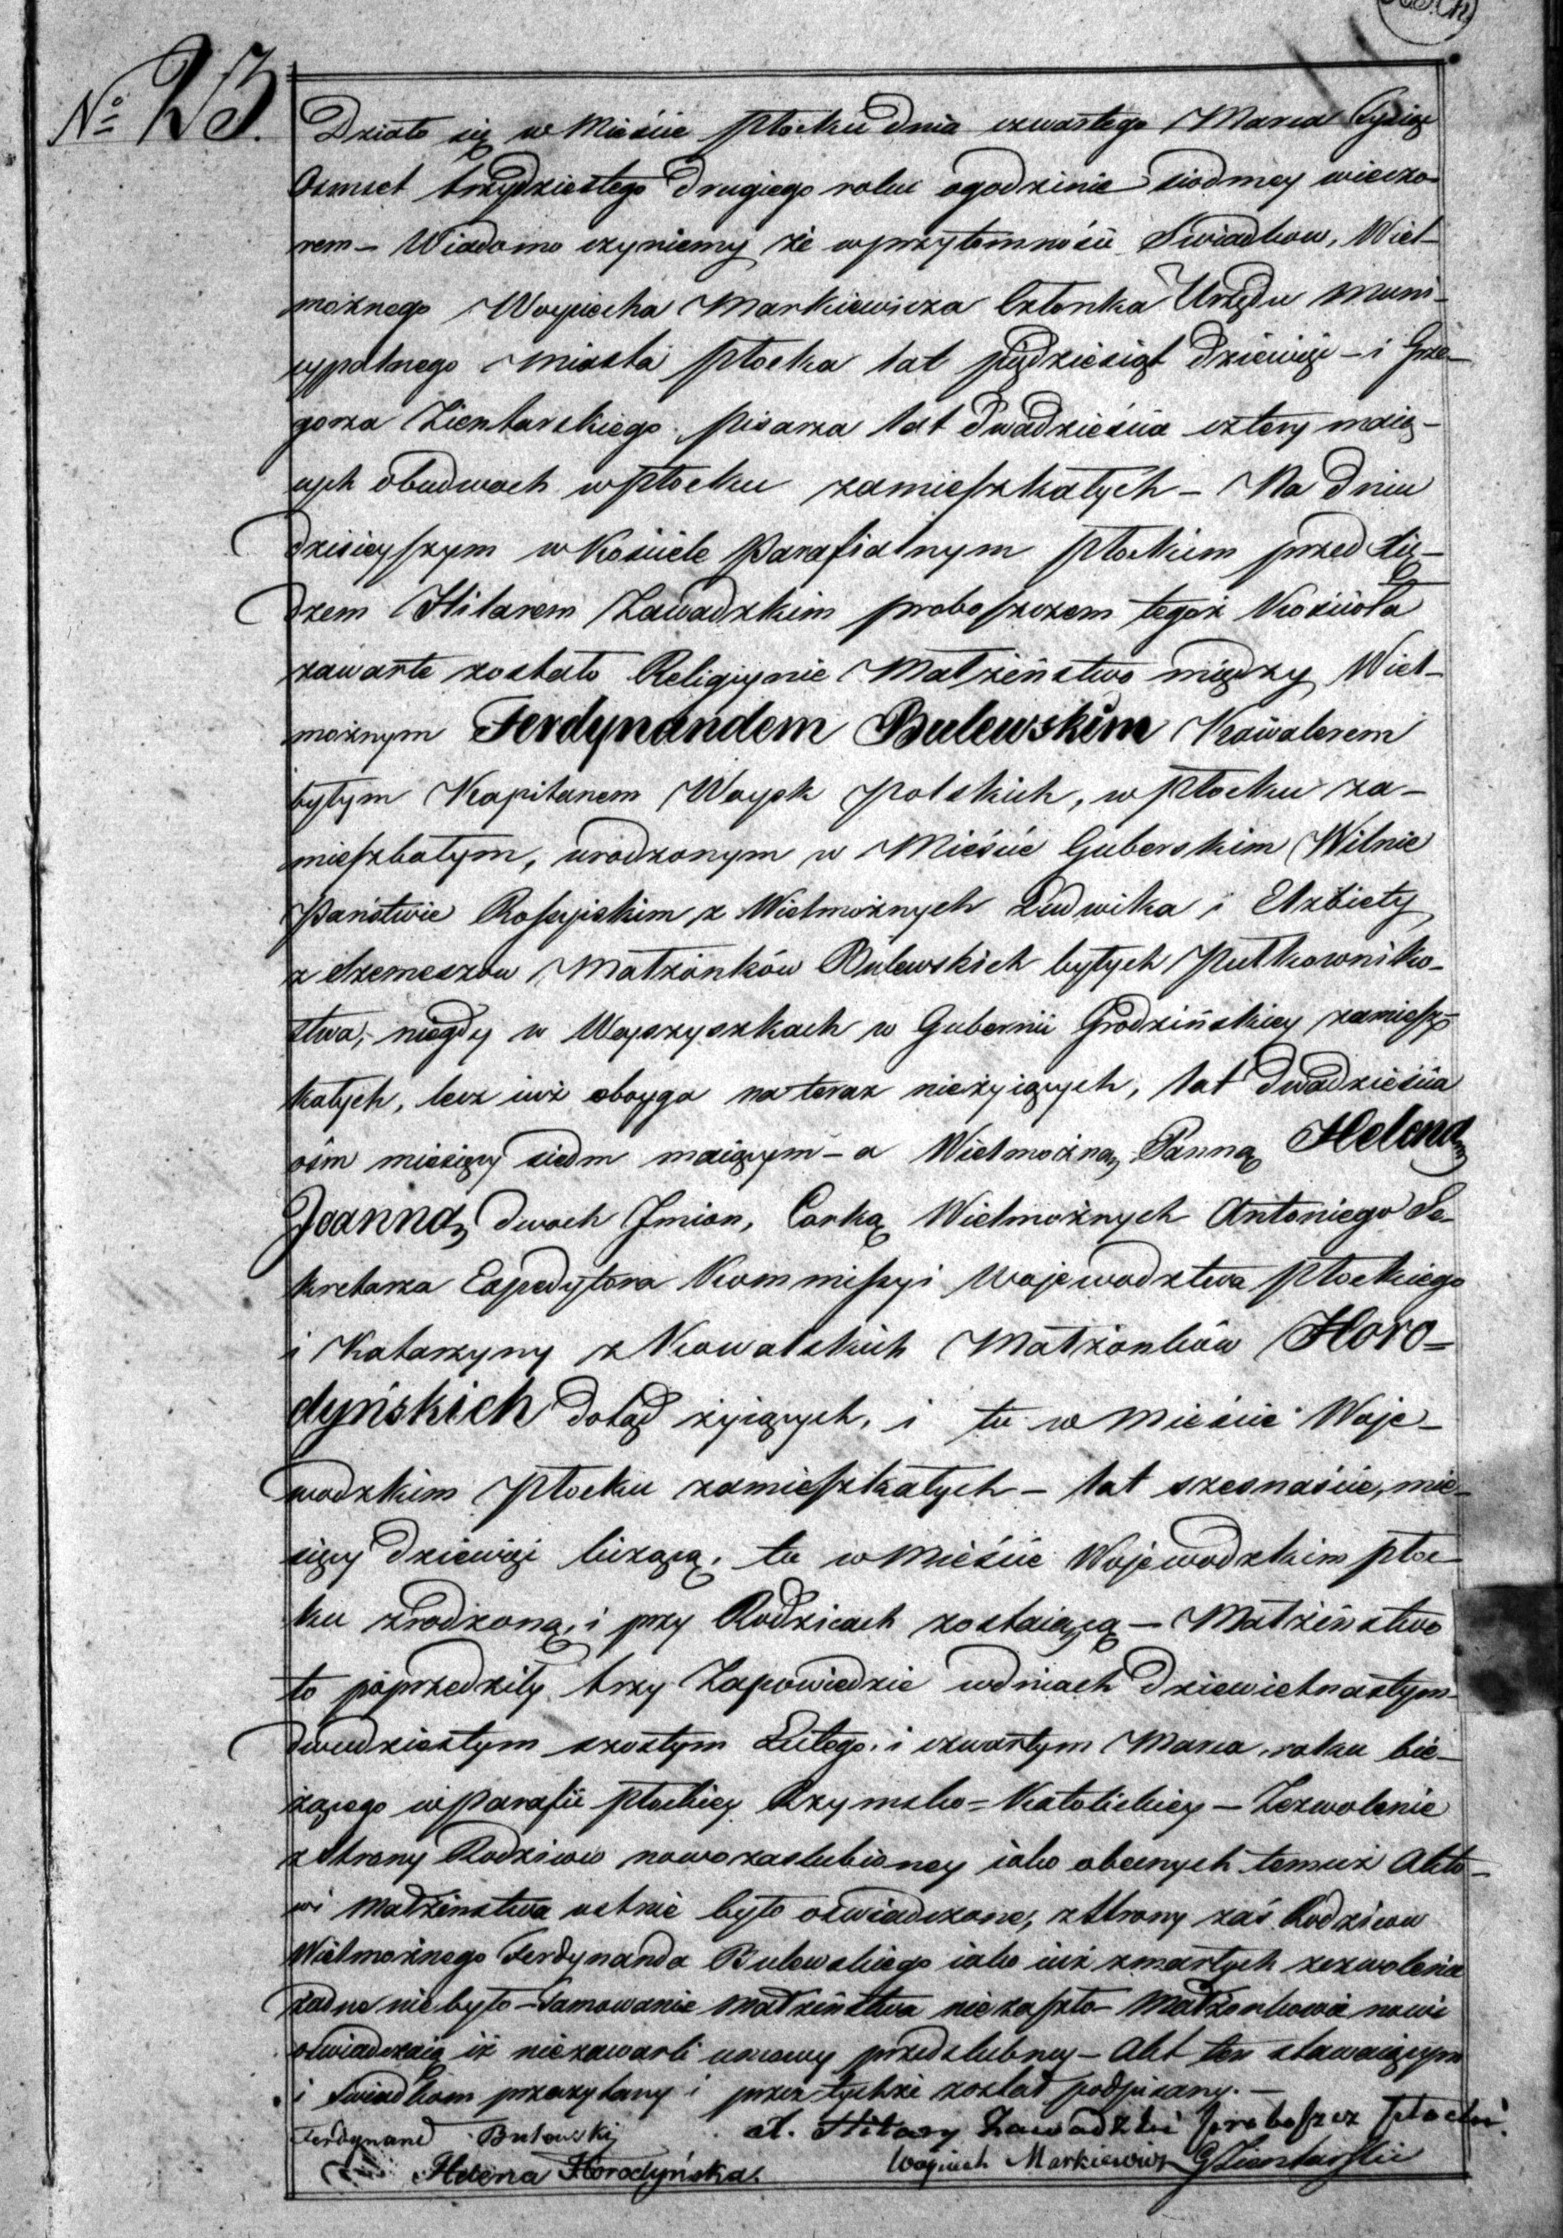 № 23.
Działo się w Mieście Płocku dnia czwartego Marca Tysiąc
Osmset trzydziestego drugiego roku ogodzinie siodmey wieczo-
rem – Wiadomo czyniemy że wprzytomności Swiadkow, Wiel-
możnego Woyciecha Markiewicza Członka Urzędu Muni-
cypalnego Miasta Płocka lat pięдziesiąt dziewięć – i Grze-
gorza Zientarskiego pisarza lat dwadzieścia cztery maią-
cych obudwoch wPłocku zamieszkałych – Na dniu
dzisieyszym w Kościele Parafialnym Płockim przed Xię-
dzem Hilarem Zawadzkim proboszczem tegoż Kościoła
zawarte zostało Religiynie Małżeństwo między Wiel-
możnym Ferdynandem Bulewskim Kawalerem
byłym Kapitanem Woysk Polskich, w Płocku za-
mieszkałym, urodzonym w Mieście Guberskim Wilnie
Państwie Rossyiskim z Wielmożnych Ludwika i Elżbiety
z Małżonków Bulewskich byłych Pułkowniko-
stwa, niegdy w w Gubernii Grodzińskiey zamiesz-
kałych, lecz iuż oboyga na teraz nieżyiących, lat dwadzieścia
ośm miesięcy siedm maiącym – a Wielmożną Panną Heleną
Joanną dwoch Jmion, Corką Wielmożnych Antoniego Se-
kretarza Expedytora Kommissyi Wojewodztwa Płockiego
i Katarzyny z Kowalskich Małżonków Horo-
dyńskich dotąd żyiących, i tu w Mieście Woje-
wodzkim Płocku zamieszkałych – lat szesnaście, mie-
sięcy dziewięć liczącą, tu w Mieście Wojewodzkim Płoc-
ku zrodzoną, i przy Rodzicach zostaiącą – Małżeństwo
to poprzedziły trzy Zapowiedzie wdniach dziewietnastym
dwudziestym szostym Lutego, i czwartym Marca, roku bie-
żącego wParafii Płockiey Rzymsko=Katolickiey – Zezwolenie
z strony Rodzicow nowozaslubioney iako obecnych temuż Akto-
wi Małżenstwa ustnie było oświadczone, z strony zaś Rodzicow
Wielmożnego Ferdynanda Bulewskiego iako iuż zmarłych zezwolenia
żadne nie było – Tamowanie małżeństwa nie zaszło – Małżonkowie nowi
oświadczaią iż niezawarli umowy przedslubney – Akt ten stawaiącym
i Swiadkom przeczytany i przez tychże został podpisany. –
Ferdynand Bulewski X. Hilary Zawadzki Proboszcz Płocki.
Helena Horodyńska. Woyciech Markiewicz GZientarski